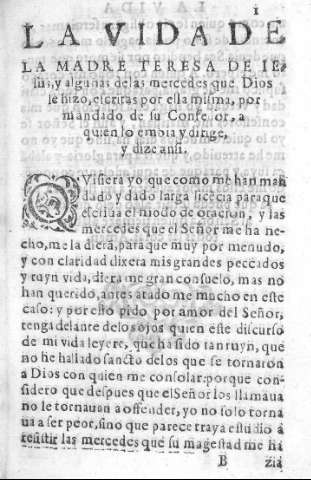 1
LA VIDA DE
LA MADRE TERESA DE IE
sus, y algunas delas mercedes que Dios
le hizo, escritas por ella misma, por
mandado de su Confessor, a
quien lo embia y dirige,
y dize ansi.
QVisiera yo que como me han man
dado y dado larga licẽcia para que
escriua el modo de oracion, y las
mercedes que el Señor me ha he-
cho, me la dierã, para que muy por menudo,
y con claridad dixera mis grandes peccados
y ruyn vida, diera me gran consuelo, mas no
han querido, antes atado me mucho en este
caso: y por esto pido por amor del Señor,
tenga delante delos ojos quien este discurso
de mi vida leyere, que ha sido tan ruyn, que
no he hallado sancto delos que se tornaron
a Dios con quien me consolar: porque con-
sidero que despues que el Señor los llamaua
no le tornauan a offender, yo no solo torna
ua a ser peor, sino que parece traya estudio a
resistir las mercedes que su magestad me ha
B zia